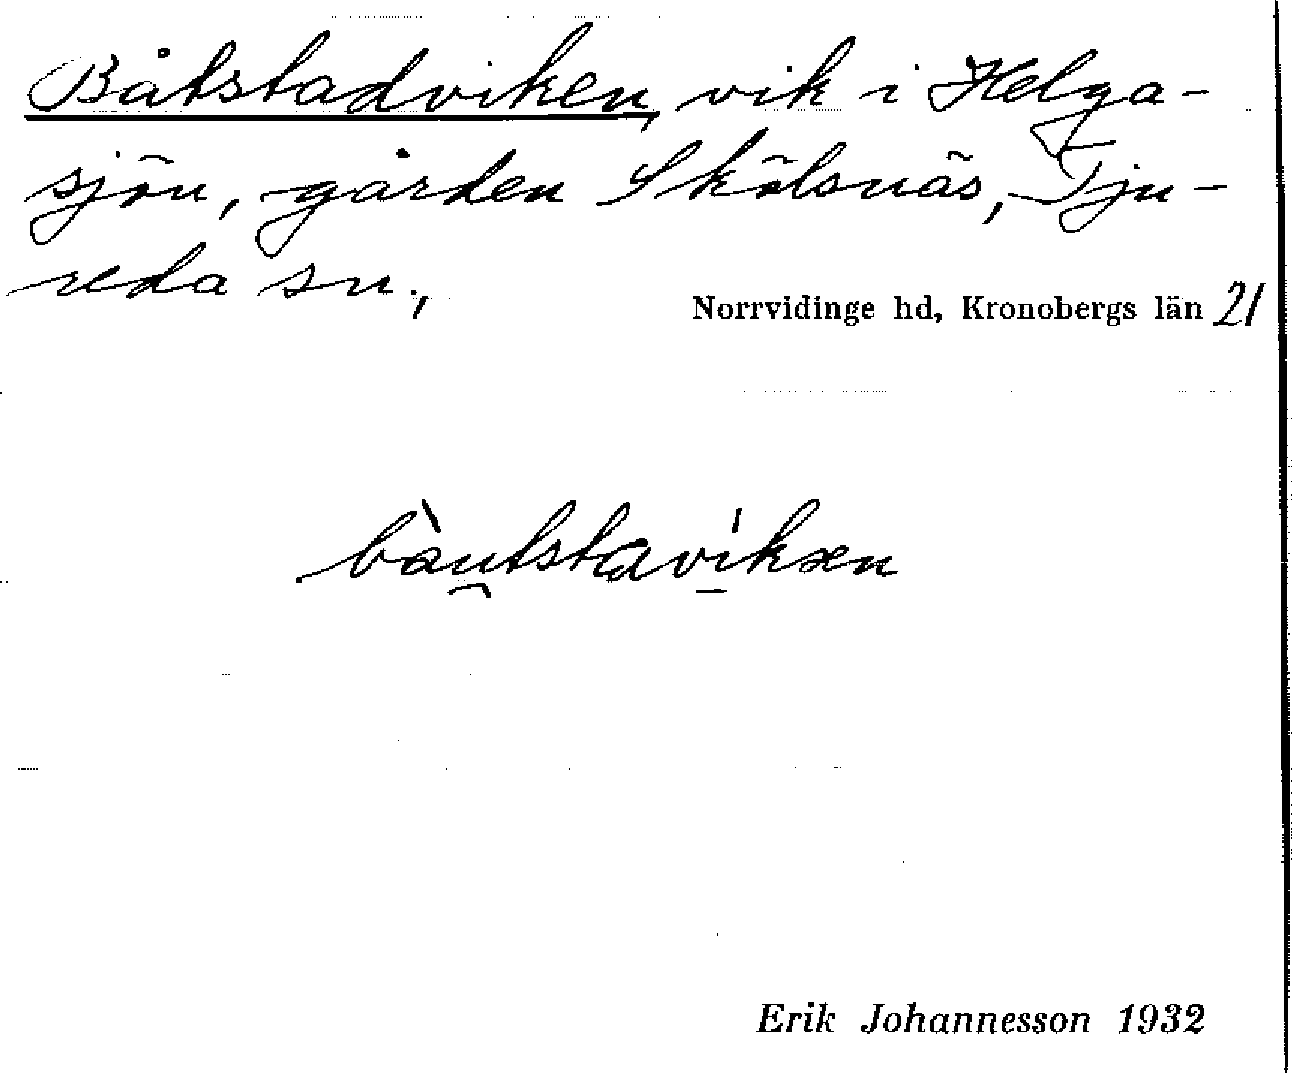 Båtstadviken, vik i Helga-
sjön, gården Skälsnäs, Tju-
reda sn.,
Norrvidinge hd, Kronobergs län 21
bàu̯tstavi̱kæn
Erik Johannesson 1932